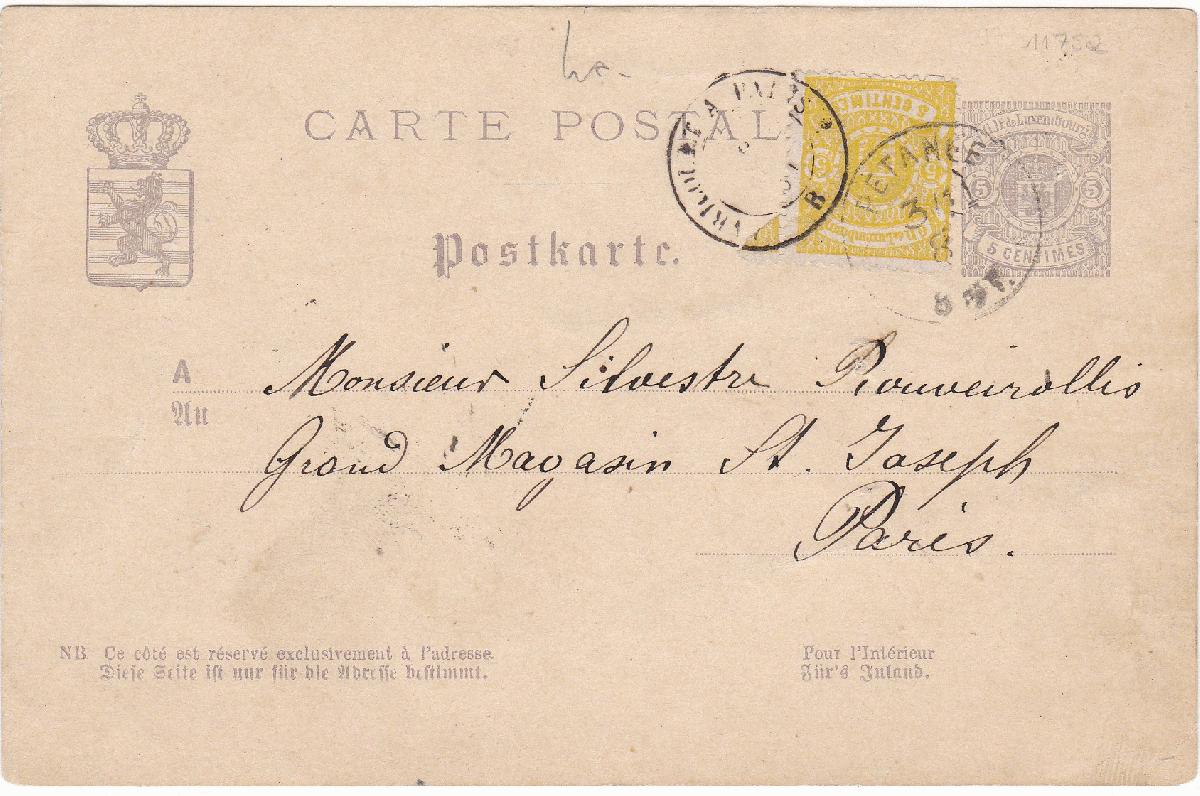 11752
CARTE POSTAL
Postkarte.
5 CENTIMES
G.D. de Luxembourg
5 5
5 CENTIMES
A PARIS
B
A Monsieur Silvestre Rouveirollis
An
Grand Magasin St. Joseph
Paris.
NB Ce côté est réservé exclusivement à l'adresse.
Diese Seite ist nur für die Adresse bestimmt.
Pour l'Intérieur
Für's Inland.